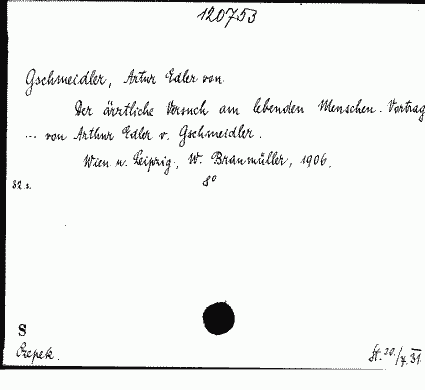 120753
Gschmeidler, Artur Edler von
Der ärztliche Versuch am lebenden Menschen. Vortrag
... von Arthur Edler v. Gschmeidler.
Wien u. Leipzig, W. Braumüller, 1906.
32 s. 8°
S
Czepek.
St. 20./X. 31.